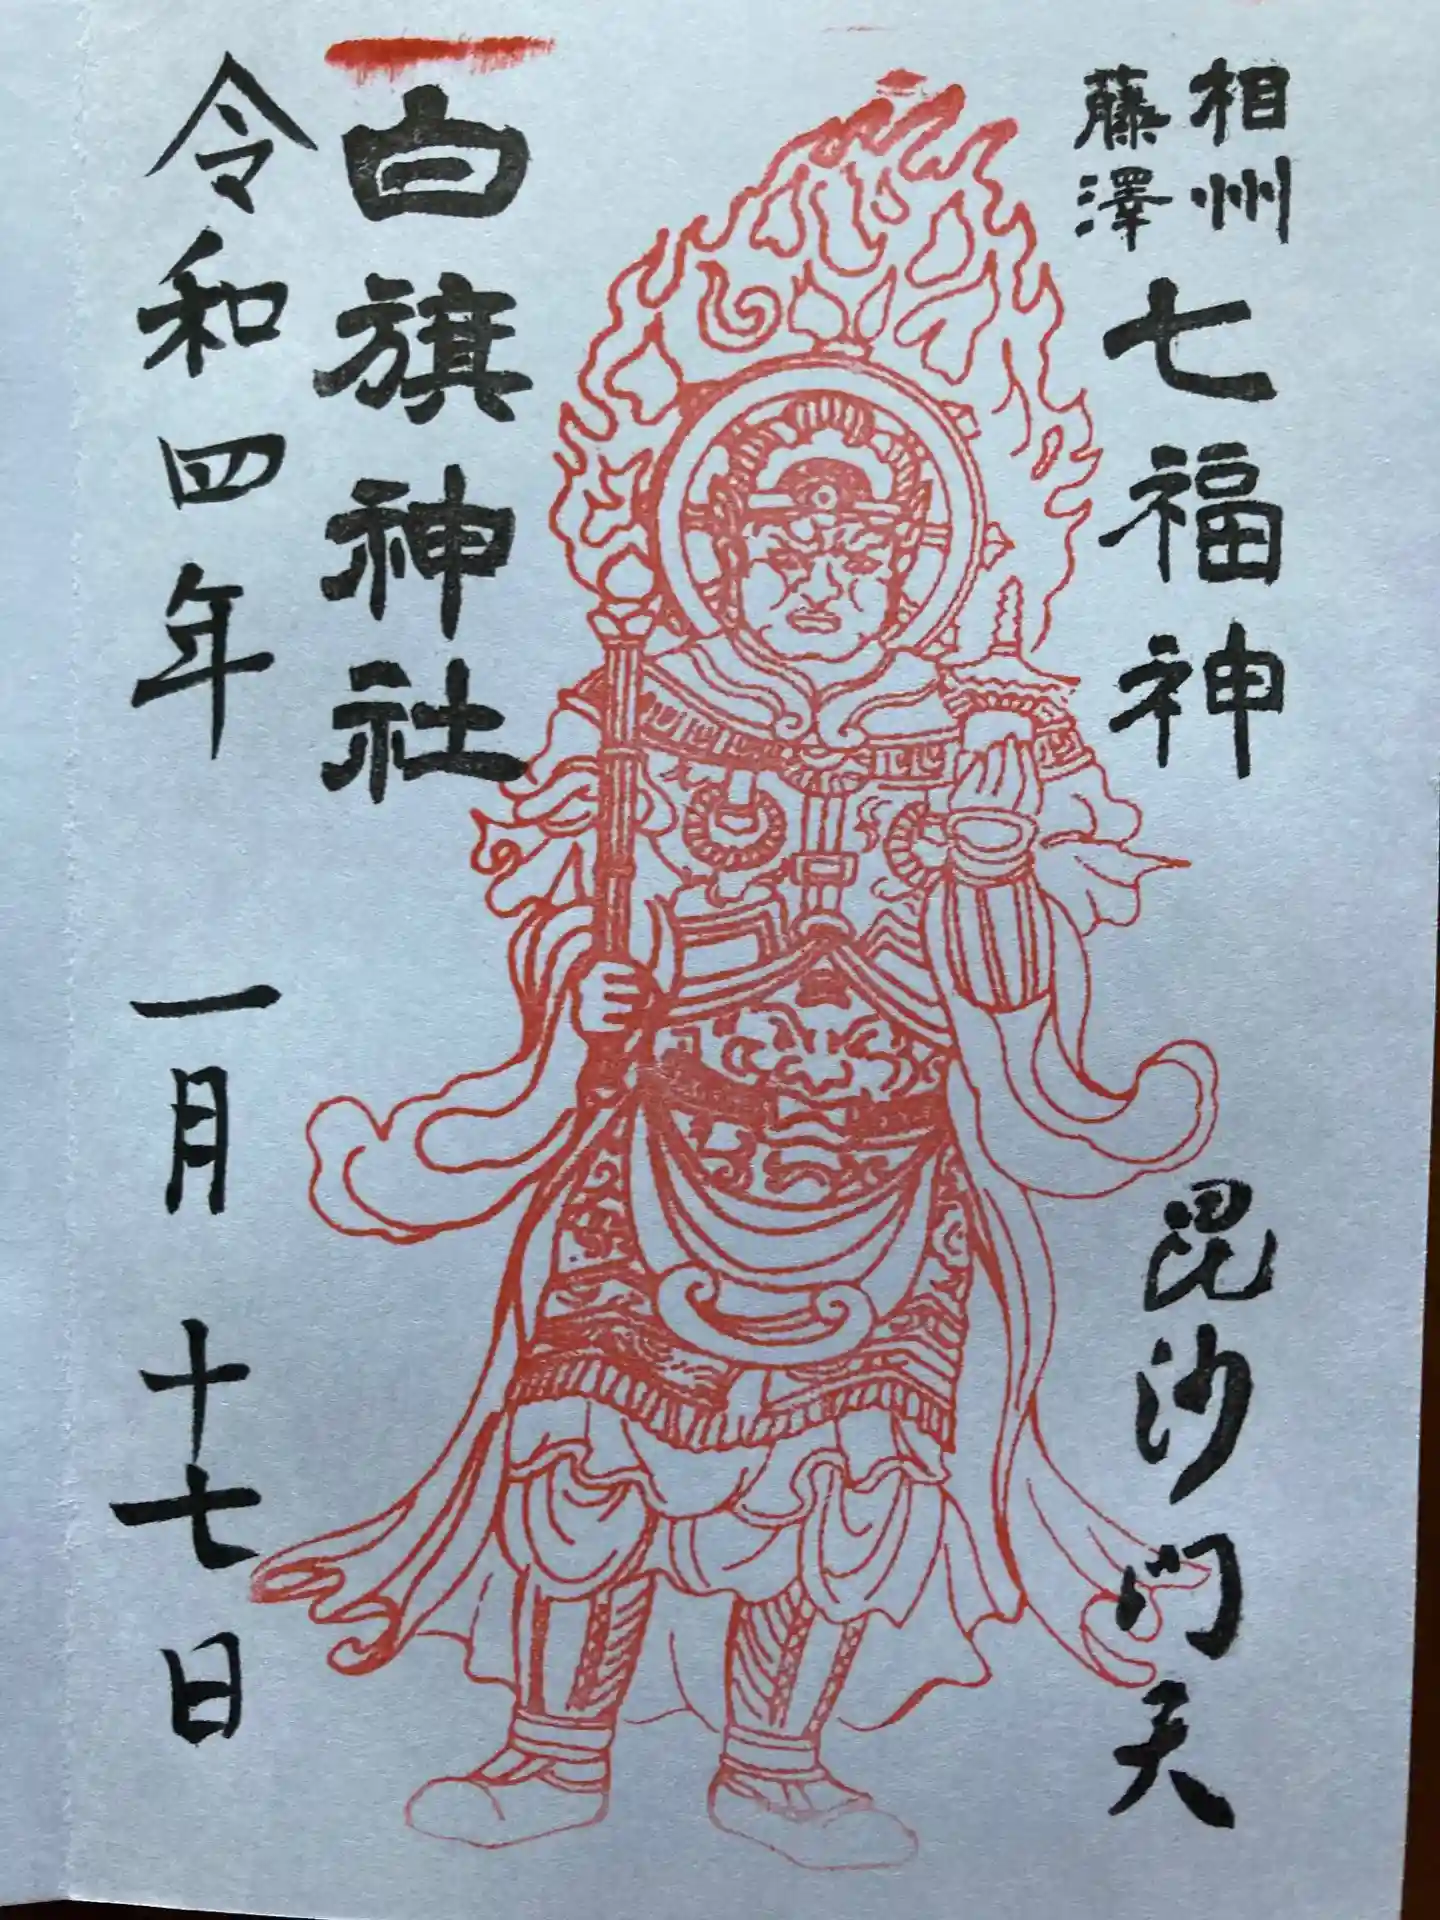 相州
藤澤
七福神
毘沙门天
白旗神社
令和四年 一月 十七日